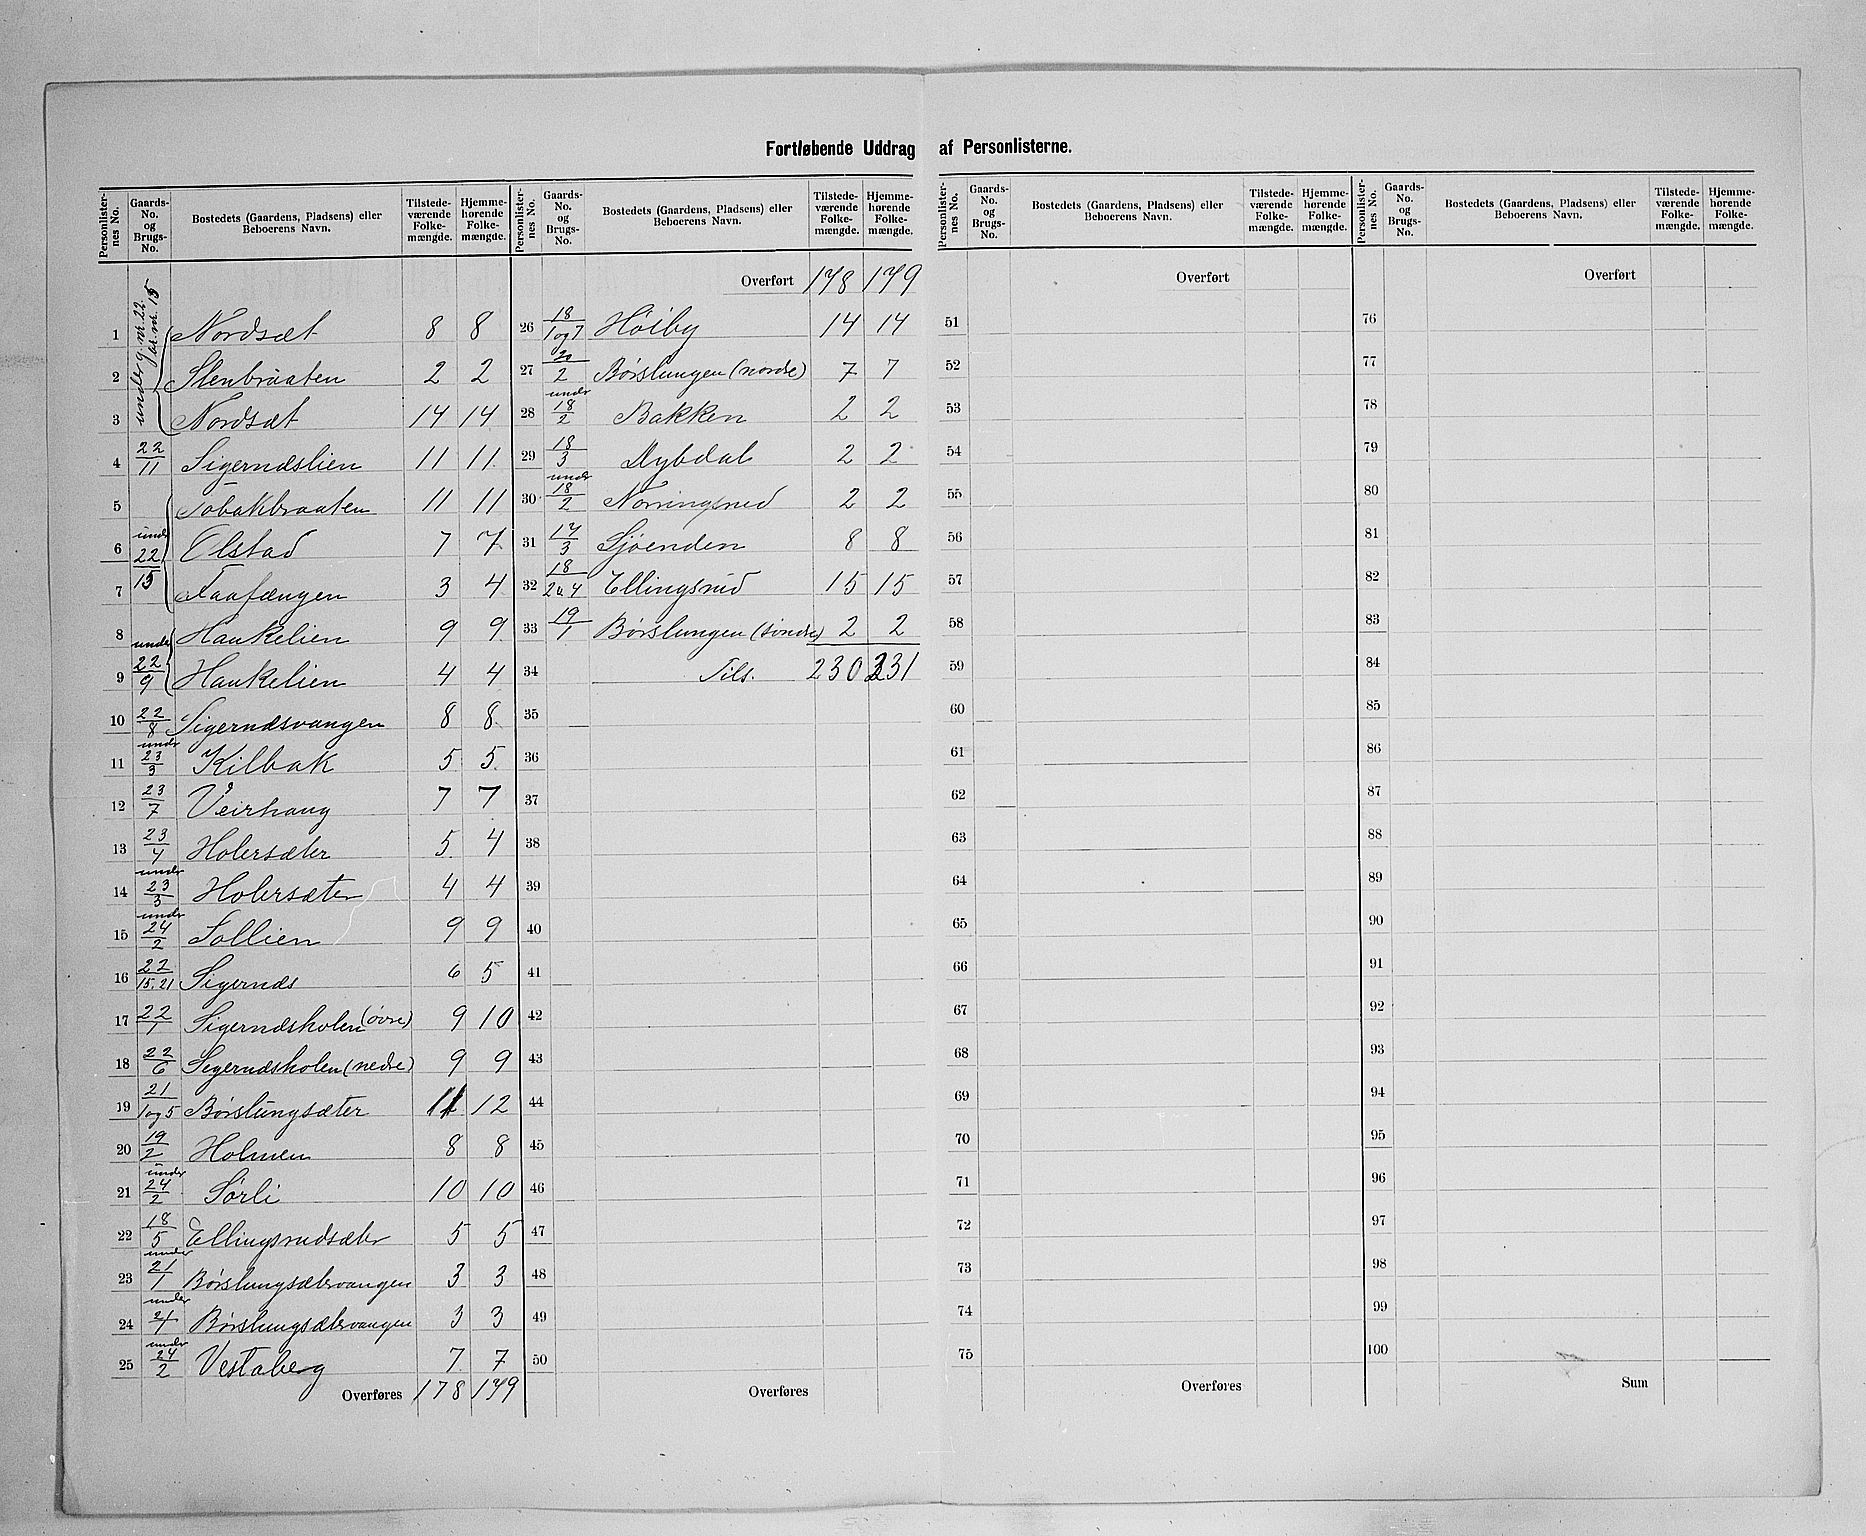 Fortløbende Uddrag af Personlisterne.
Personlister-nes No. | Gaards-No. og Brugs-No. | Bostedets (Gaardens, Pladsens) eller Beboerens Navn. | Tilstede-værende Folke-mængde. | Hjemme-hørende Folke-mængde.
under g. nr. 22. br. nr. 15
1 Nordsæt 8 8
2 Stenbraaten 2 2
3 Nordsæt 14 14
4 22/11 Sigernæslien 11 11
5 Tobakbraaten 11 11
6 under 22/15 Olstad 7 7
7 Taafængen 3 4
8 under 22/9 Haukelien 9 9
9 Haukelien 4 4
10 22/8 Sigernæsvangen 8 8
11 under 23/3 Kilbak 5 5
12 23/7 Veirhaug 7 7
13 23/4 Holersæter 5 4
14 under 23/3 Holersæter 4 4
15 under 24/2 Sollien 9 9
16 22/15.21 Sigernæs 6 5
17 22/1 Sigernæsholen (övre) 9 10
18 22/6 Sigernæsholen (nedre) 9 9
19 21/1 og 5 Børslungsæter 11 12
20 19/2 Holmen 8 8
21 under 24/2 Sørli 10 10
22 18/5 Ellingsrudsæter 5 5
23 under 21/1 Børslungsætervangen 3 3
24 under 21/1 Børslungsætervangen 3 3
25 under 24/2 Vestaberg 7 7
Overføres 178 179
Personlister-nes No. | Gaards-No. og Brugs-No. | Bostedets (Gaardens, Pladsens) eller Beboerens Navn. | Tilstede-værende Folke-mængde. | Hjemme-hørende Folke-mængde.
Overført 178 179
26 18/1 og 7 Høiby 14 14
27 20/2 Børslungen (nordre) 7 7
28 under 18/2 Bakken 2 2
29 18/3 Dybdal 2 2
30 under 18/2 Norringsrud 2 2
31 17/3 Sjøenden 8 8
32 18/2 og 4 Ellingsrud 15 15
33 19/1 Børslungen (søndre) 2 2
34 Tils. 230 231
35
36
37
38
39
40
41
42
43
44
45
46
47
48
49
50
Overføres
Personlister-nes No. | Gaards-No. og Brugs-No. | Bostedets (Gaardens, Pladsens) eller Beboerens Navn. | Tilstede-værende Folke-mængde. | Hjemme-hørende Folke-mængde.
Overført
51
52
53
54
55
56
57
58
59
60
61
62
63
64
65
66
67
68
69
70
71
72
73
74
75
Overføres
Personlister-nes No. | Gaards-No. og Brugs-No. | Bostedets (Gaardens, Pladsens) eller Beboerens Navn. | Tilstede-værende Folke-mængde. | Hjemme-hørende Folke-mængde.
Overført
76
77
78
79
80
81
82
83
84
85
86
87
88
89
90
91
92
93
94
95
96
97
98
99
100
Sum